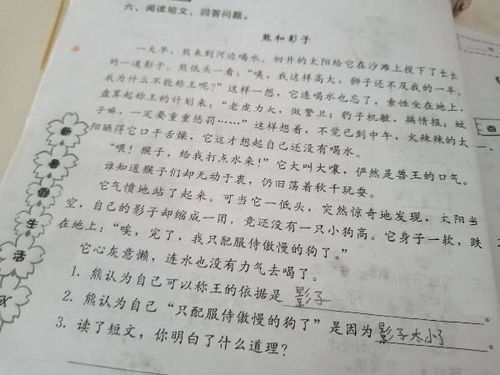 六、阅读短文，回答问题。
熊和影子
一大早，熊来到河边喝水、初升的太阳给它在沙滩上投下了长长
的一道影子。熊低头一看，“唉，我这样高大，狮子还不及我的一半，
我为什么不能称王呢？”这样一想，它连喝水也忘了，索性坐在地上，
盘算起称王的计划来，“老虎力大，做警卫；豹子机敏，搞情报；蚊
子嘛，一定要重重惩罚……”这样想着，不觉已到中午，火辣辣的太
阳晒得它口干舌燥，它这才想起自己还没有喝水。
“喂！猴子，给我打点水来！”它大叫大嚷，俨然是兽王的口气。
谁知道猴子们却无动于衷，仍旧荡着秋千玩耍。
它气愤地站了起来。可当它一低头，突然惊奇地发现，太阳当
空，自己的影子却缩成一团，竟还没有一只小狗高。它身子一软，跌
在地上：“唉，完了，我只配服侍傲慢的狗了。”
它心灰意懒，连水也没有力气去喝了。
1. 熊认为自己可以称王的依据是 影子 。
2. 熊认为自己“只配服侍傲慢的狗了”是因为 影子太小了 。
3. 读了短文，你明白了什么道理？
生
活